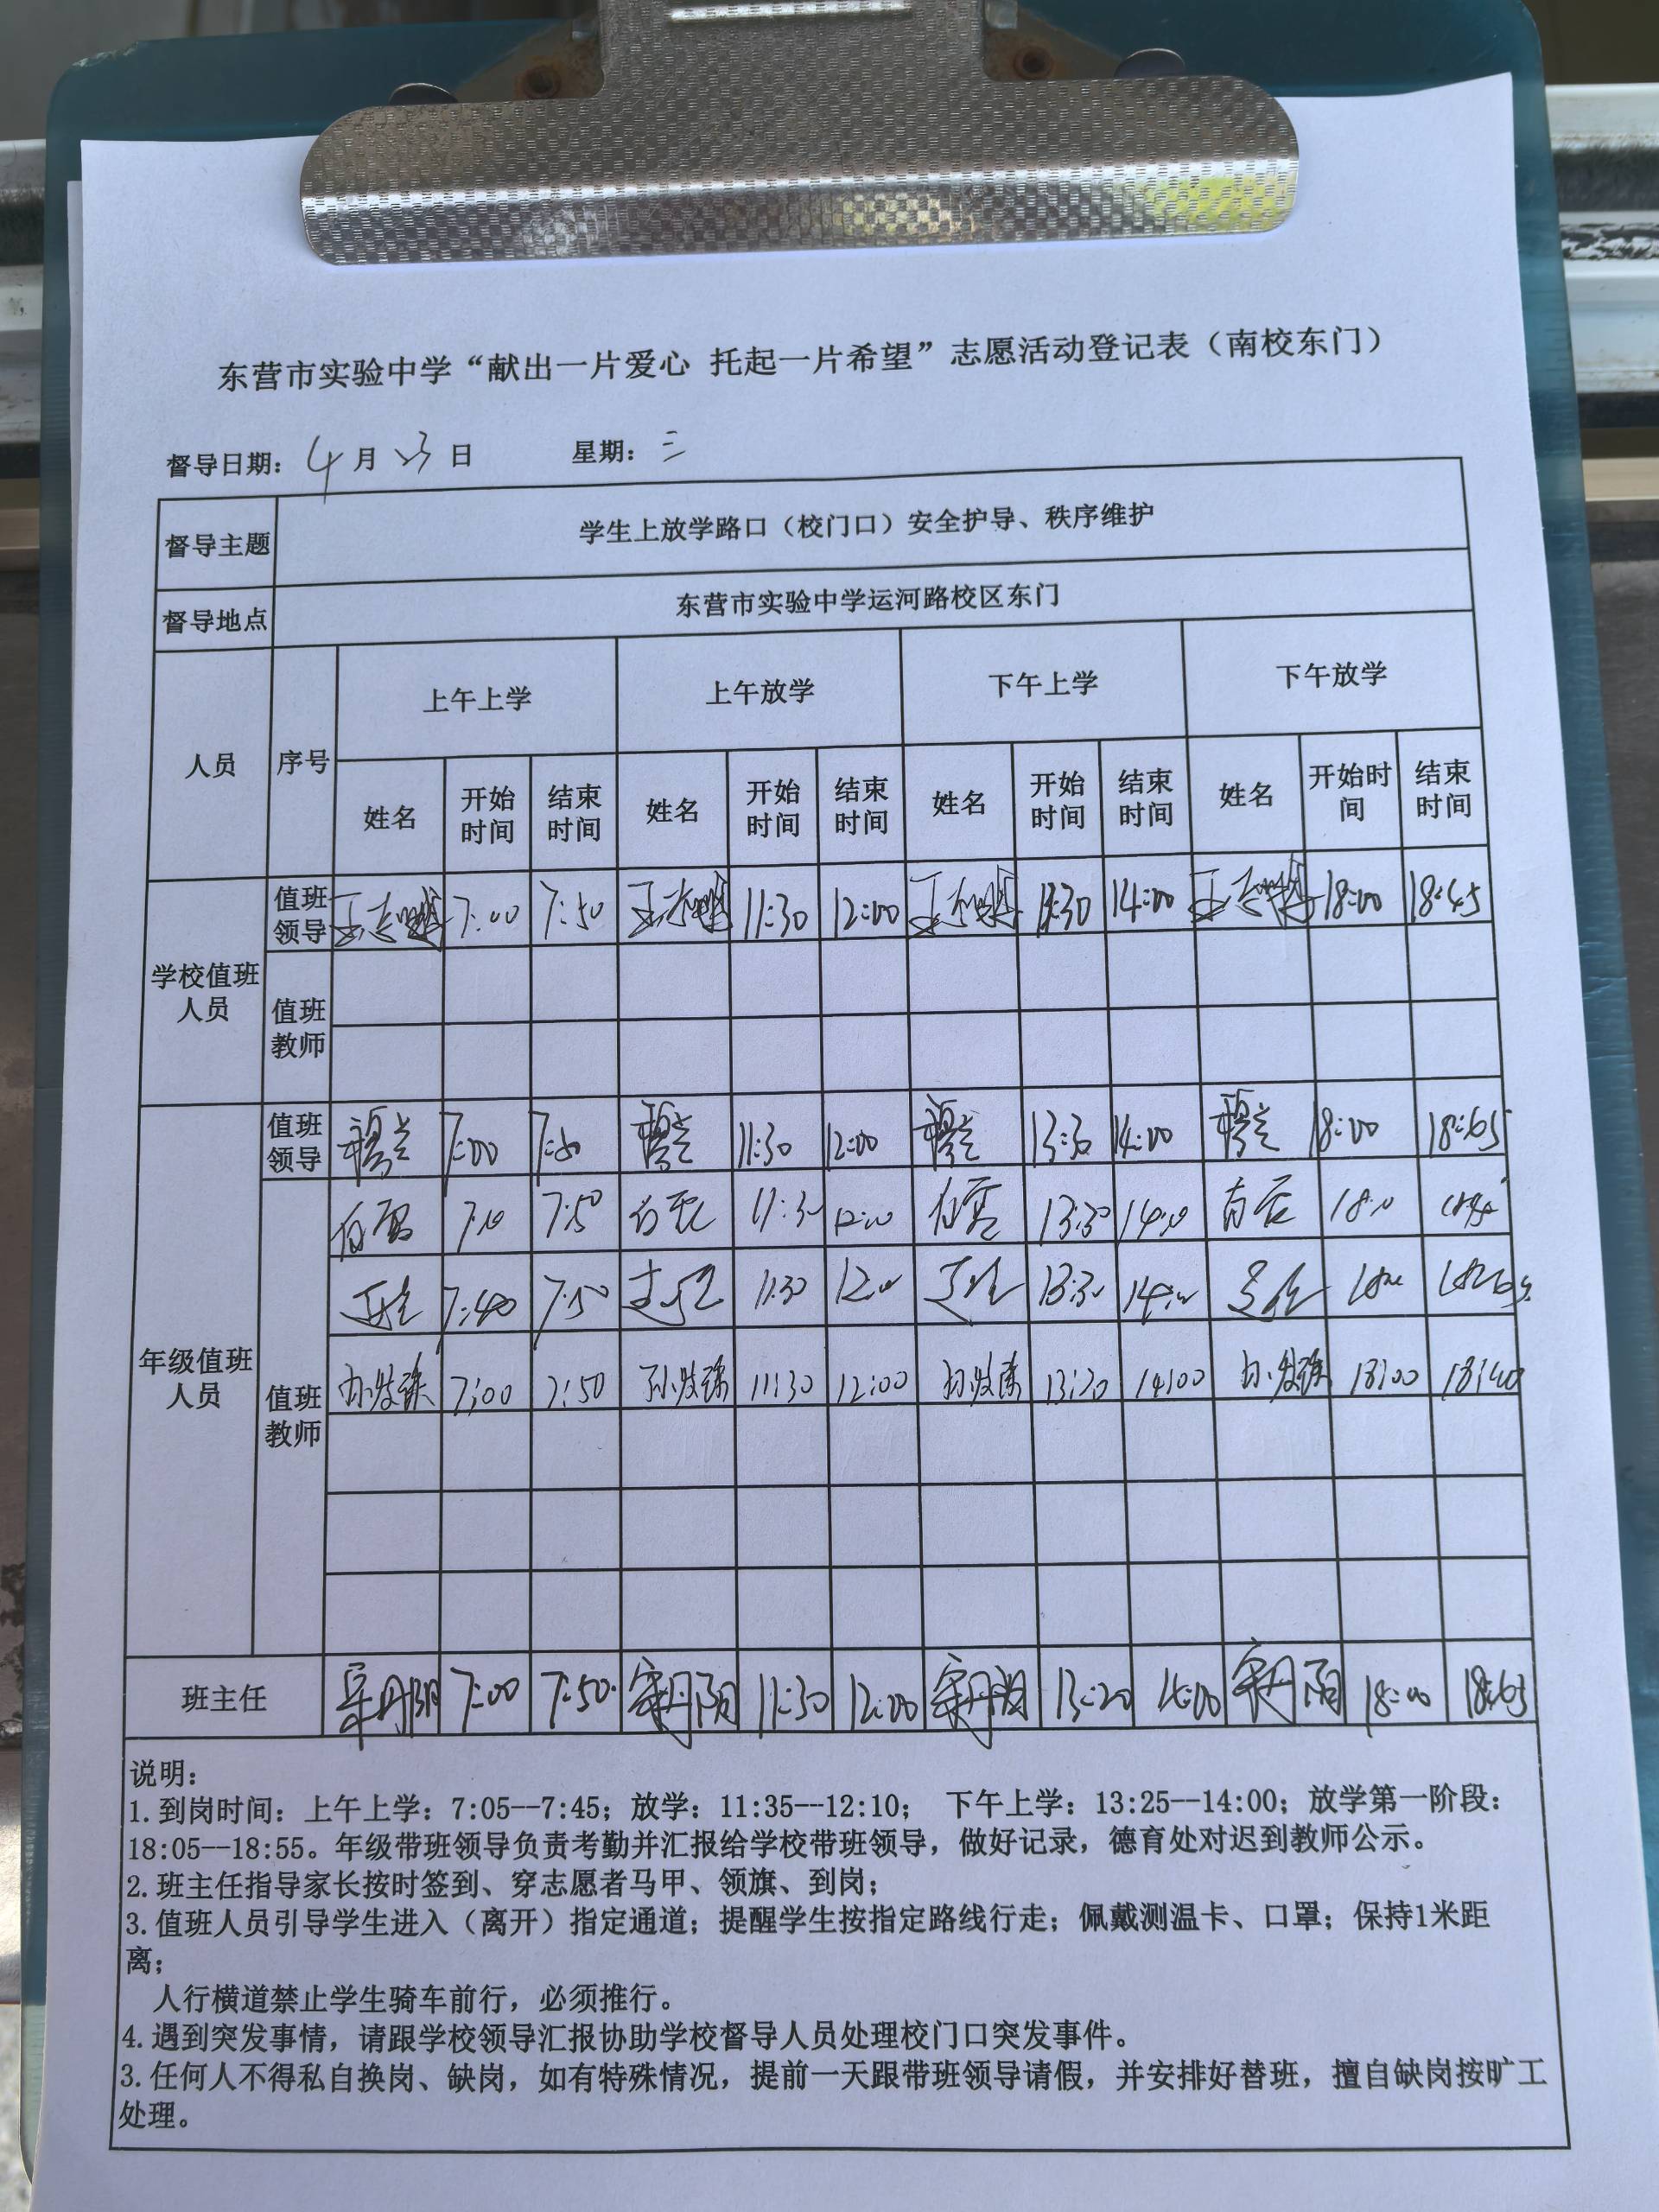 东营市实验中学“献出一片爱心 托起一片希望”志愿活动登记表（南校东门）
督导日期： 4 月 23 日 星期： 三
督导主题 学生上放学路口（校门口）安全护导、秩序维护
督导地点 东营市实验中学运河路校区东门
人员 序号 上午上学 上午放学 下午上学 下午放学
姓名 开始时间 结束时间 姓名 开始时间 结束时间 姓名 开始时间 结束时间 姓名 开始时间 结束时间
学校值班人员
值班领导 7:00 7:50 11:30 12:00 13:30 14:00 18:00 18:45
值班教师
年级值班人员
值班领导 7:00 11:30 12:00 13:30 14:00 18:00
值班教师
7:50 11:30 13:30
7:50 11:30 13:30
7:00 7:50 11:30 12:00 14:00 18:00 18:40
班主任 宋丹阳 7:00 7:50 宋丹阳 11:30 12:00 宋丹阳 14:00 宋丹阳 18:00
说明：
1.到岗时间：上午上学：7:05--7:45；放学：11:35---12:10； 下午上学：13:25--14:00；放学第一阶段：
18:05--18:55。年级带班领导负责考勤并汇报给学校带班领导，做好记录，德育处对迟到教师公示。
2.班主任指导家长按时签到、穿志愿者马甲、领旗、到岗；
3.值班人员引导学生进入（离开）指定通道；提醒学生按指定路线行走；佩戴测温卡、口罩；保持1米距
离；
人行横道禁止学生骑车前行，必须推行。
4.遇到突发事情，请跟学校领导汇报协助学校督导人员处理校门口突发事件。
3.任何人不得私自换岗、缺岗，如有特殊情况，提前一天跟带班领导请假，并安排好替班，擅自缺岗按旷工
处理。